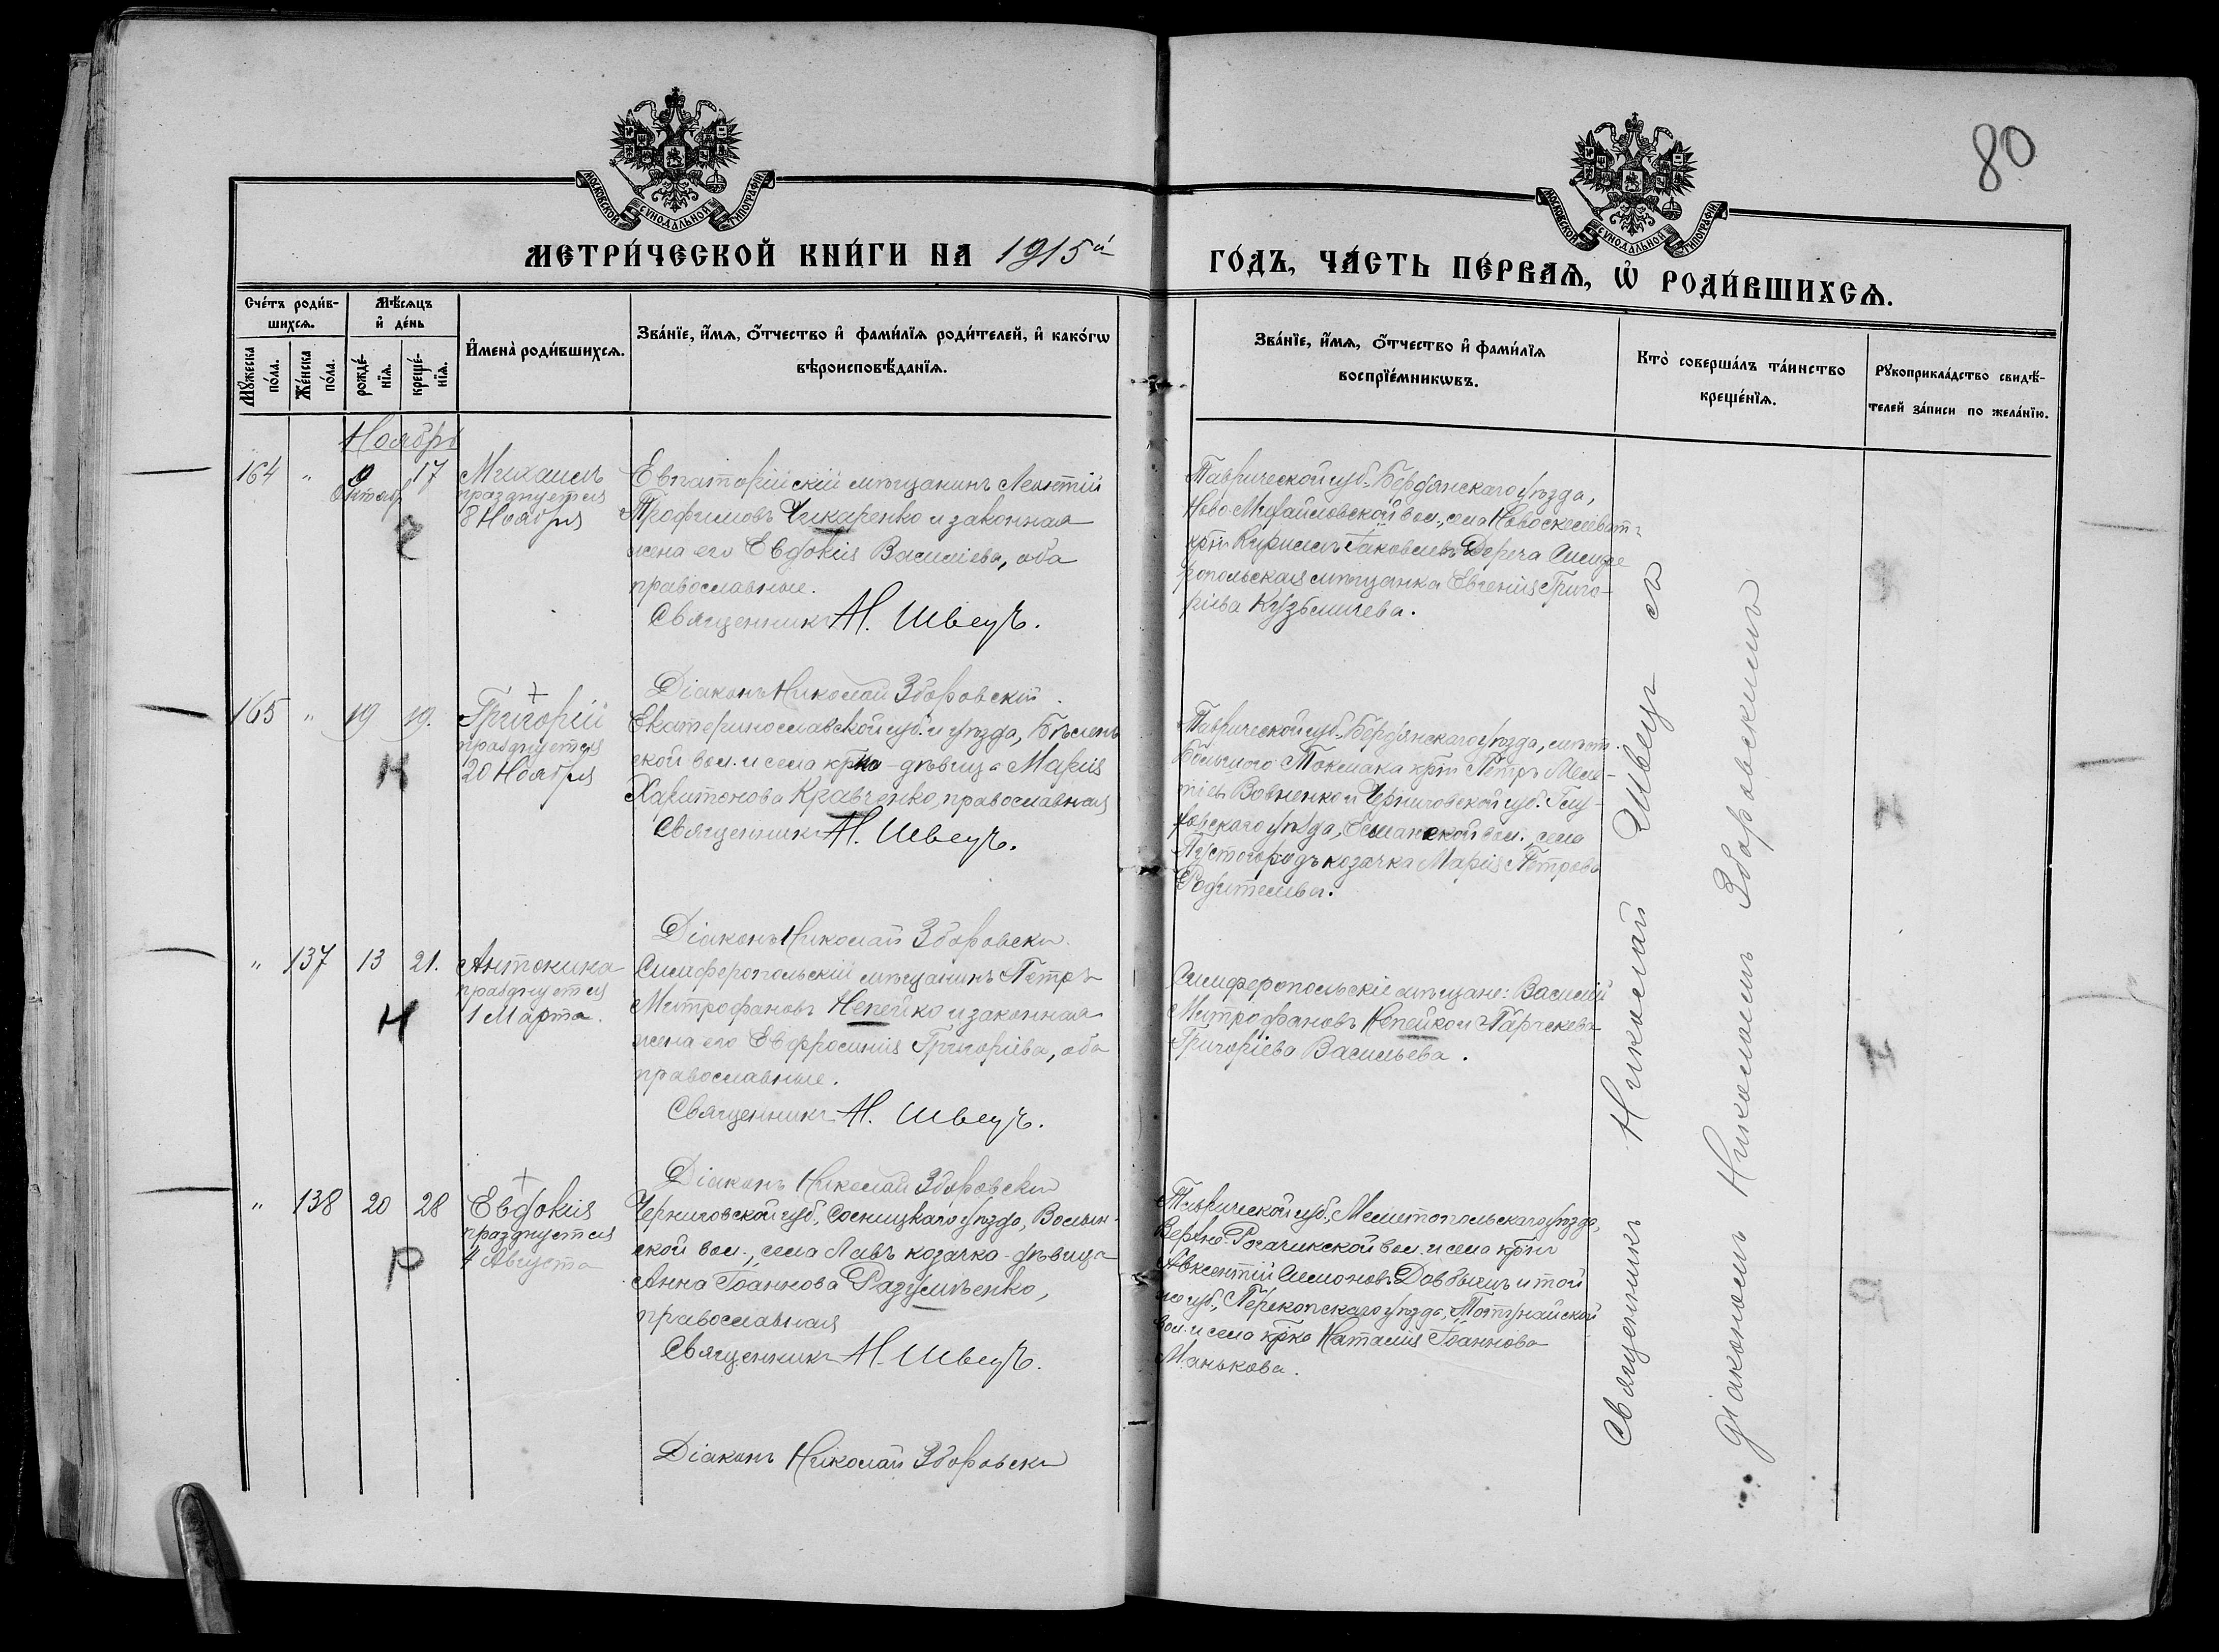 80
МОСКОВСКОЙ СѴНОДАЛЬНОЙ ТИПОГРАФІИ
МОСКОВСКОЙ СѴНОДАЛЬНОЙ ТИПОГРАФІИ
МЕТРИ́ЧЕСКОЙ КНИ́ГИ НА 1915й
ГО́ДЪ, ЧА́СТЬ ПЕ́РВАѦ, Ѡ҆ РОДИ́ВШИХСѦ.
Сче́тъ роди́в-
шихсѧ.
Мꙋ́жеска по́ла.
Же́нска по́ла.
Мѣ́сѧцъ
и҆ де́нь
рожде́-
нїѧ.
креще́-
нїѧ.
И҆мена̀ роди́вшихсѧ.
Зва́нїе, и҆́мѧ, ѻ҆́тчество и҆ фами́лїѧ роди́телей, и҆ како́гѡ
вѣроисповѣ́данїѧ.
Зва́нїе, и҆́мѧ, ѻ҆́тчество и҆ фами́лїѧ
воспрїе́мникѡвъ.
Кто̀ соверша́лъ та́инство
креще́нїѧ.
Рꙋкоприкла́дство свидѣ́-
телей за́писи по жела́нїю.
Ноябрь
164 " 9 17 Михаилъ
Октяб
празднуется
8 Ноября
Евпаторійскій мѣщанинъ Леонтій
Трофимовъ Чикаренко и законная
жена его Евдокія Василіева, оба
православные.
Священникъ Н. Швецъ.
Діаконъ Николай Зборовскій.
Таврической губ., Бердянскаго уѣзда,
Ново Михайловской вол., села
кр-нъ Кириллъ Іаковлевъ Дереча Симфе
ропольская мѣщанка Евгенія Григо-
ріева Кузьмичева.
165 " 19 19. Григорій
празднуется
20 Ноября
Н
Екатеринославской губ. и уѣзда, Бѣлень
ской вол. и села кр-ка - дѣвица Марія
Харитонова Кравченко, православная
Священникъ Н. Швецъ.
Діаконъ Николай Зборовски
Таврической губ., Бердянскаго уѣзда, мѣст.
Большого Токмака кр-нъ Петръ Меле-
тіевъ Вовненко и Черниговской губ. Глу-
ховского уѣзда, Есманской вол., села
Пустогородъ козачка Марія Петрова
Родителева.
" 137 13 21. Антонина
празднуется
1 Марта.
Н
Симферопольскій мѣщанинъ Петръ
Митрофановъ Непейко и законная
жена его Евфросинія Григоріева, оба
православные.
Священникъ Н. Швецъ.
Діаконъ Николай Зборовски
Симферопольскіе мѣщане: Василій
Митрофановъ Непейко и Параскева
Григоріева Васильева.
" 138 20 28 Евдокія
празднуется
4 Августа
Р
Черниговской губ., Сосницкаго уѣзда, Волын-
ской вол., села Лавъ козачка - дѣвица
Анна Іоаннова Разумѣенко,
православная
Священникъ Н. Швецъ.
Діаконъ Николай Зборовски
Таврической губ., Мелитопольскаго уѣзда,
Верхне-Рогачикской вол. и села кр-нъ
Авксентій Симоновъ Довбышъ и той
же губ., Перекопскаго уѣзда,
вол. и села кр-ка Наталія Іоаннова
Манькова.
Священникъ Николай Швецъ съ
діакономъ Николаемъ Зборовскимъ